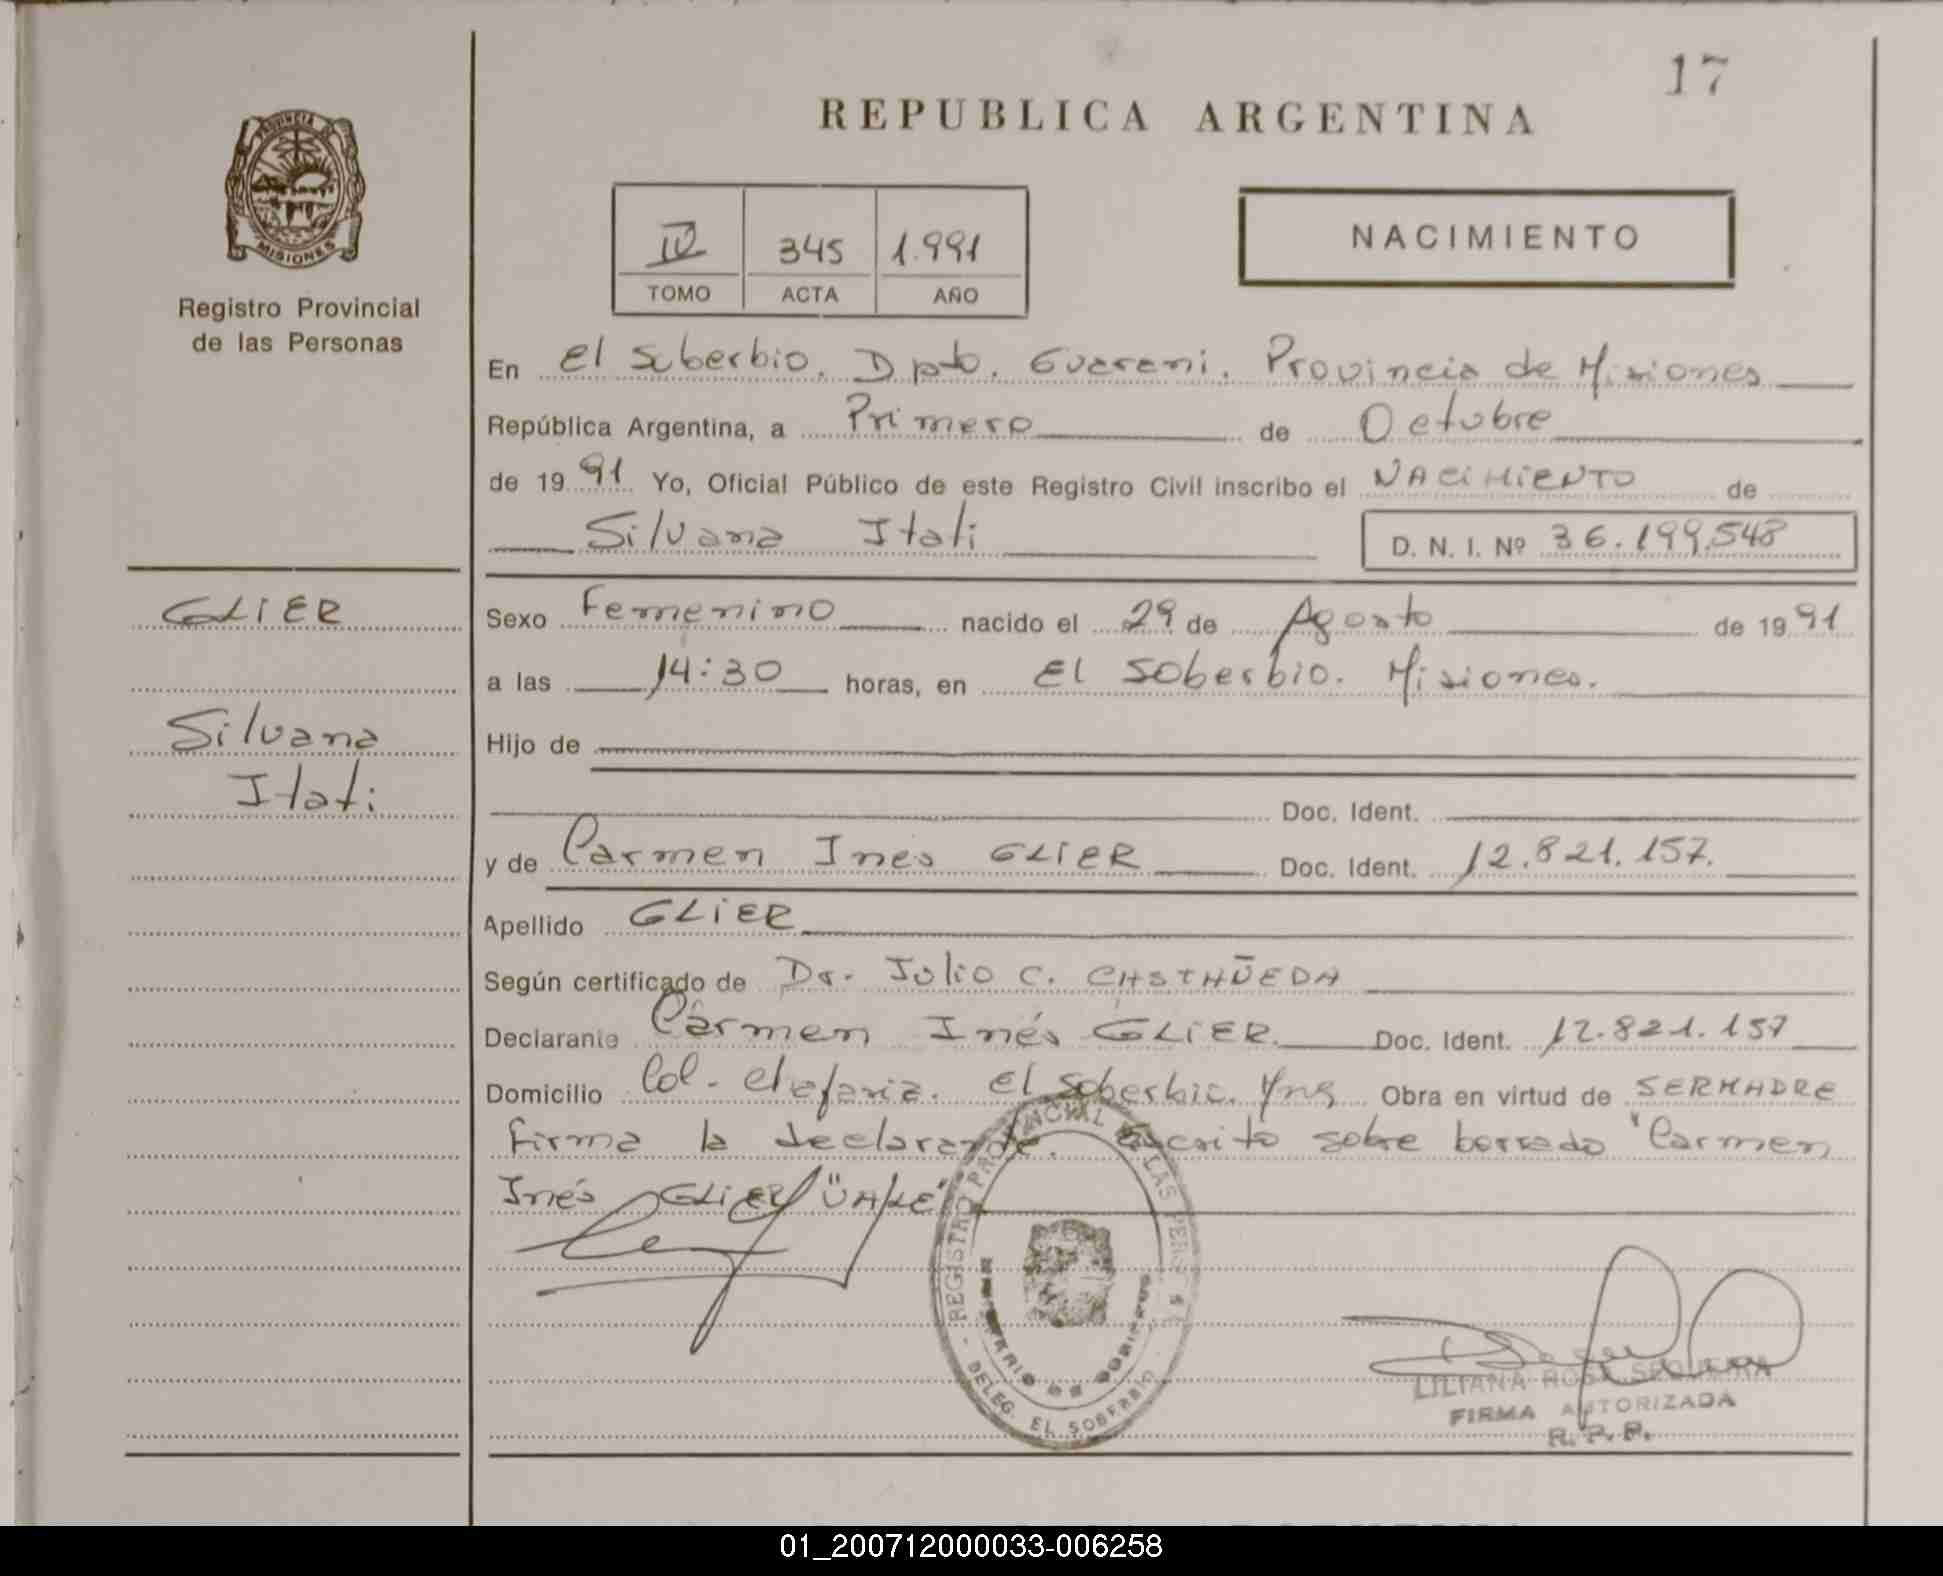 17
REPUBLICA ARGENTINA
PROVINCIA DE
MISIONES
Registro Provincial
de las Personas
IV 345 1.991
TOMO ACTA AÑO
NACIMIENTO
En El Soberbio. Dpto. Guarani. Provincia de Misiones
República Argentina, a Primero de Octubre
de 1991 Yo, Oficial Público de este Registro Civil inscribo el NACIMIENTO de
Silvana Itati D. N. I. Nº 36.199.548
GLIER
Silvana
Itati
Sexo Femenino nacido el 29 de Agosto de 1991
a las 14:30 horas, en El Soberbio. Misiones.
Hijo de
Doc. Ident.
y de Carmen Ines GLIER Doc. Ident. 12.821.157.
Apellido GLIER
Según certificado de Dr. Julio C. CASTAÑEDA
Declarante Carmen Inés GLIER. Doc. Ident. 12.821.157
Domicilio Col. El Soberbio. Obra en virtud de SER MADRE
Firma la declarante. Escrito sobre borrado "Carmen
Inés GLIER" VALE"
REGISTRO PROVINCIAL DE LAS PERSONAS
DELEG. EL SOBERBIO
LILIANA ROSA SEQUEIRA
FIRMA AUTORIZADA
R. P. P.
01_200712000033-006258